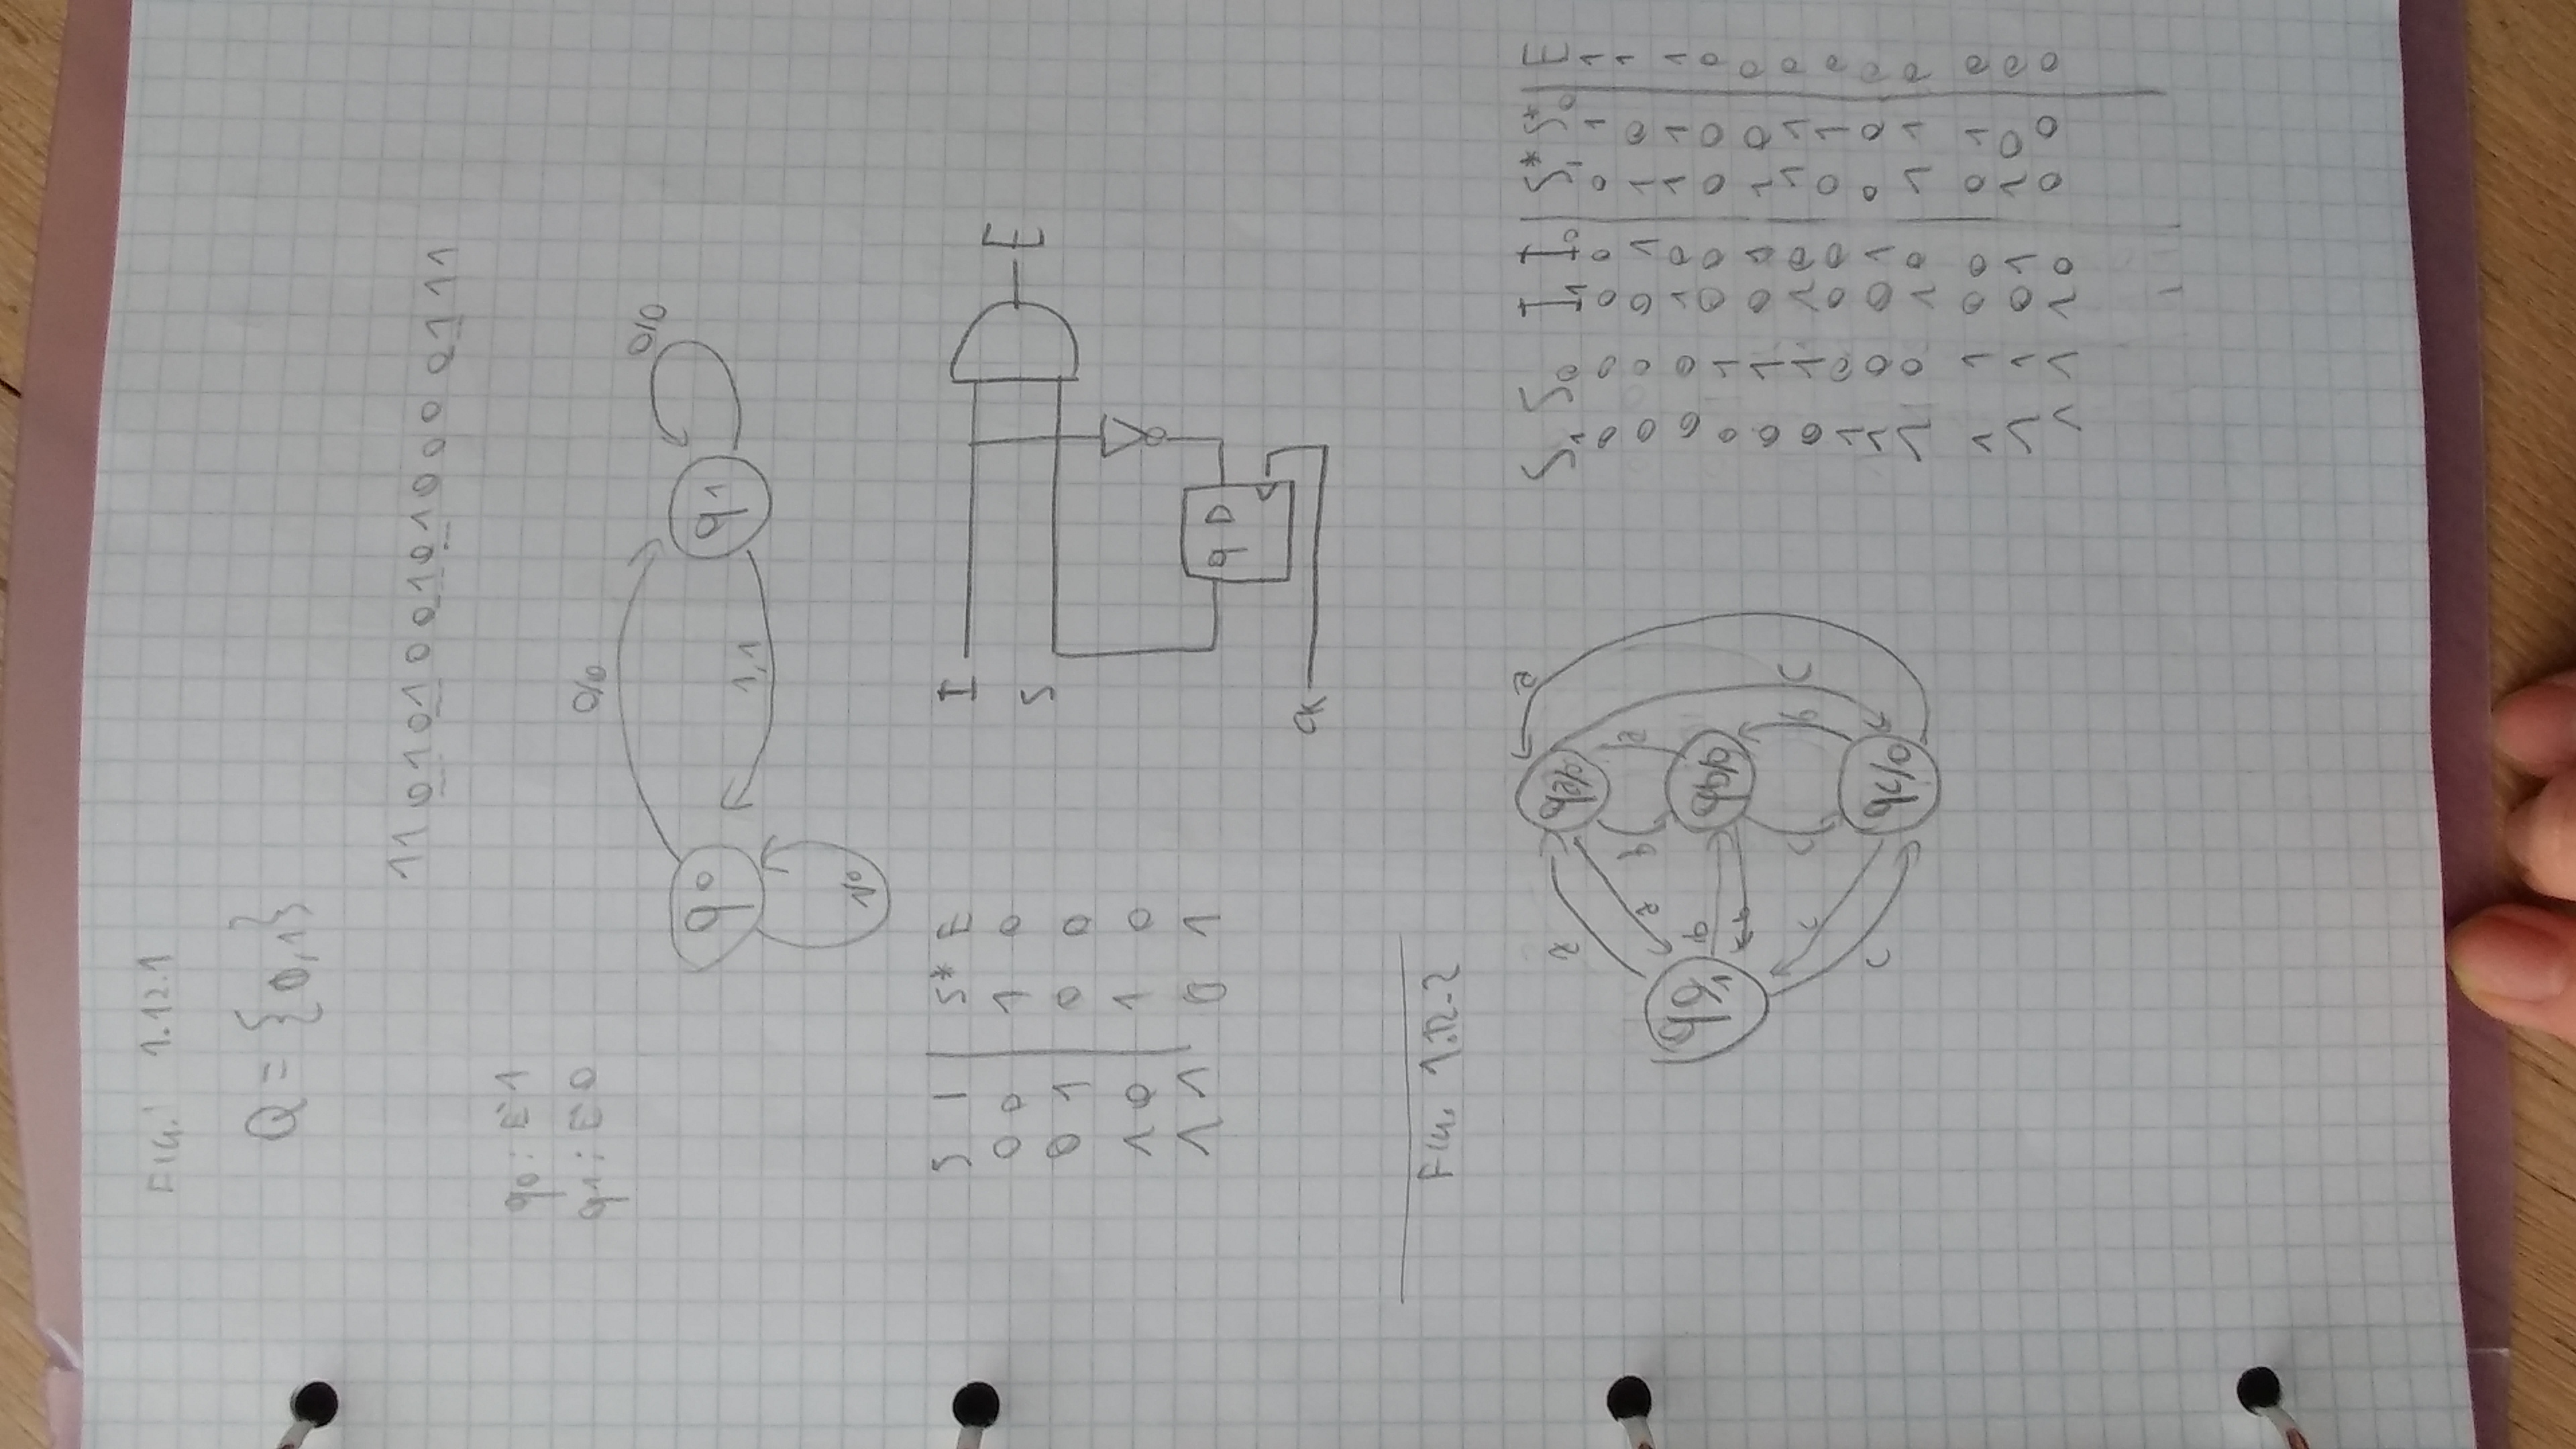 FIG. 1.12.1
Q = {0,1}
11010100101000 0111
q0: E1
q1: E0
0/0
0/0
q0
q1
1,1
1/0
S I | S* E
0 0 | 1 0
0 1 | 0 0
1 0 | 1 0
1 1 | 0 1
I
S
E
q D
CK
FIG. 1.12-2
a
a
qa/0
a
b
a
q0,1
b
b
qb/0
c
c
b
c
c
qc/0
S1 S0 I1 I0 | S1* S0* | E
0 0 0 0 | 0 1 | 1
0 0 0 1 | 1 0 | 1
0 0 1 0 | 1 1 | 1
0 1 0 0 | 0 0 | 0
0 1 0 1 | 1 0 | 0
0 1 1 0 | 1 1 | 0
1 0 0 0 | 0 1 | 0
1 0 0 1 | 0 0 | 0
1 0 1 0 | 1 1 | 0
1 1 0 0 | 0 1 | 0
1 1 0 1 | 1 0 | 0
1 1 1 0 | 0 0 | 0